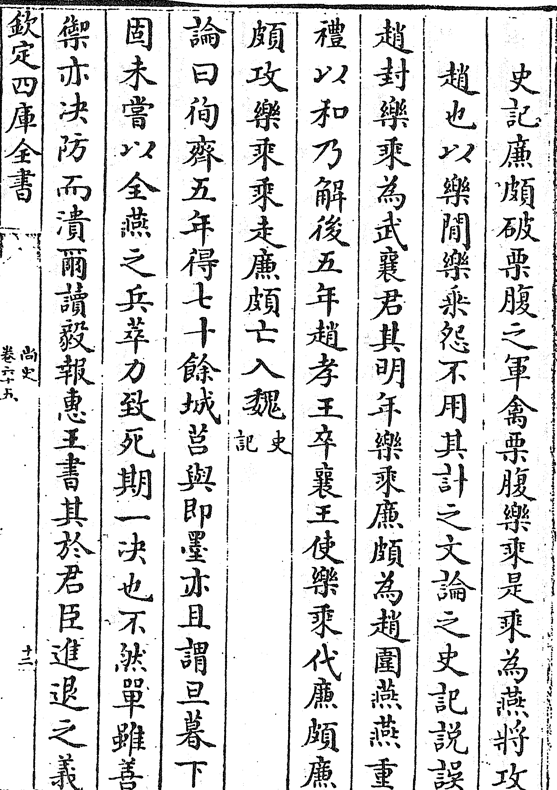 史記廉頗破栗腹之軍禽栗腹樂乘是乘為燕將攻
趙也以樂閒樂乘怨不用其計之文論之史記說誤
趙封樂乘為武襄君其明年樂乘廉頗為趙圍燕燕重
禮以和乃解後五年趙孝王卒襄王使樂乘代廉頗廉
頗攻樂乘乘走廉頗亡入魏史記
論曰徇齊五年得七十餘城莒與即墨亦且謂旦暮下
固未嘗以全燕之兵萃力致死期一决也不然單雖善
禦亦决防而潰爾讀毅報惠王書其於君臣進退之義
欽定四庫全書
尚史
卷六十五
十三